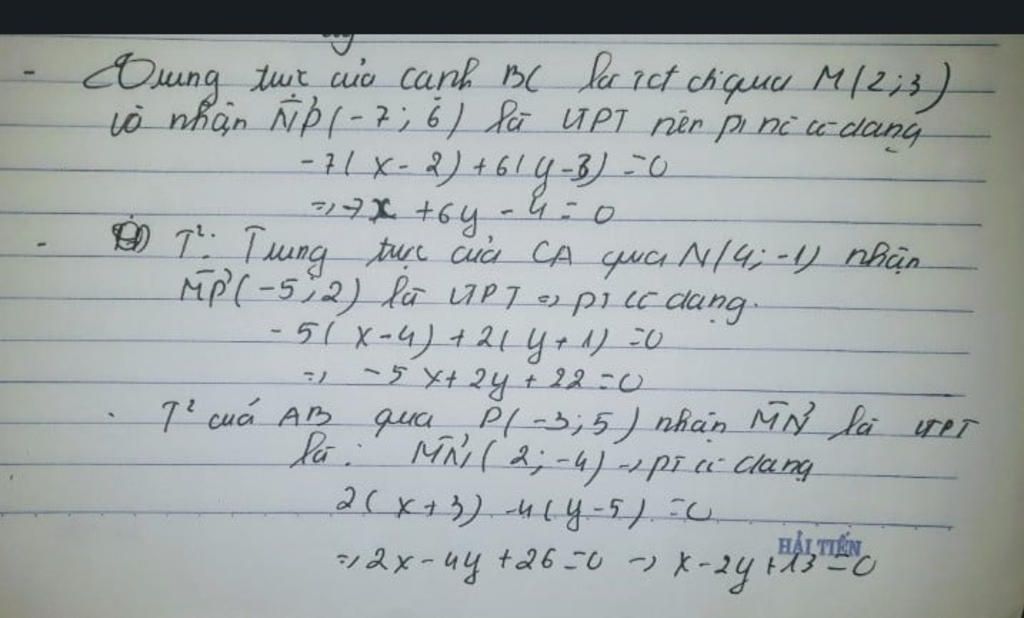 - Trung trực của cạnh BC là đt đi qua M(2;3)
và nhận NP(-7;6) là VTPT nên pt nó có dạng
-7(x-2)+6(y-3)=0
=> -7x+6y-4=0
- T²: Trung trực của CA qua N(4;-1) nhận
MP(-5;2) là VTPT => pt có dạng.
-5(x-4)+2(y+1)=0
=> -5x+2y+22=0
. T² của AB qua P(-3;5) nhận MN là VTPT
là: MN(2;-4) -> pt có dạng
2(x+3)-4(y-5)=0
HẢI TIẾN
=> 2x-4y+26=0 -> x-2y+13=0